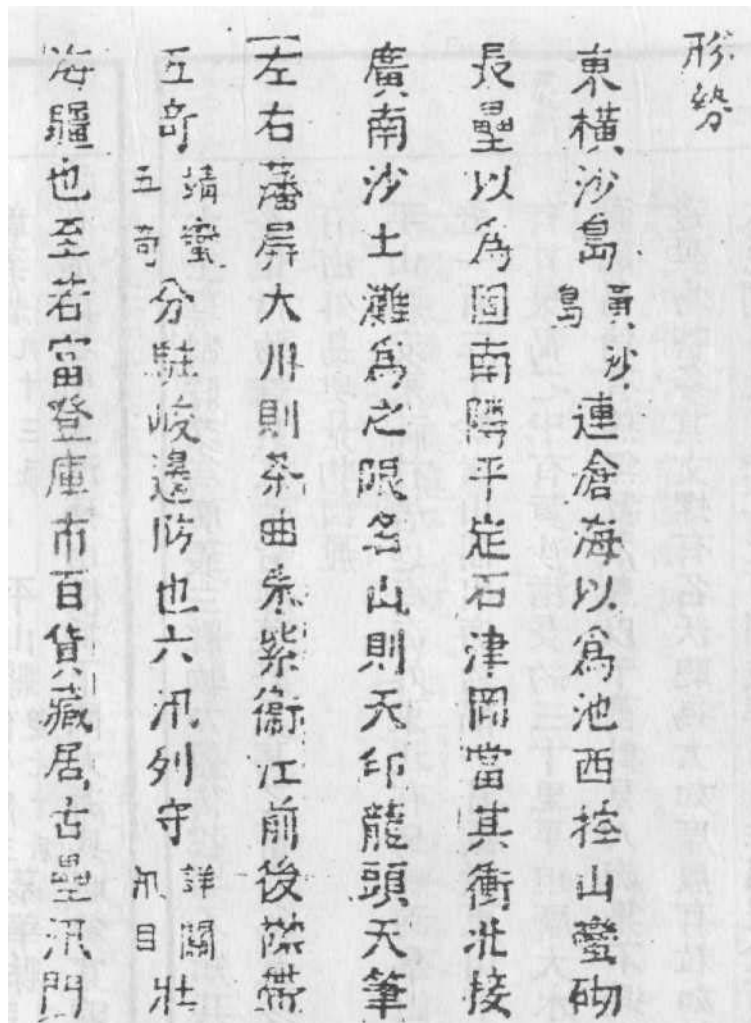 形勢
東橫沙島黃沙島連滄海以爲池西控山蠻砌
長壘以爲固南隣平定石津岡當其衝北接
廣南沙土灘爲之限名山則天印龍頭天筆
左右藩屏大川則茶曲朱紫衛江前後襟帶
五奇靖蠻五奇分駐峻邊防也六汛列守詳關汛目壯
海疆也至若富登庫市百貨藏居古壘汛門